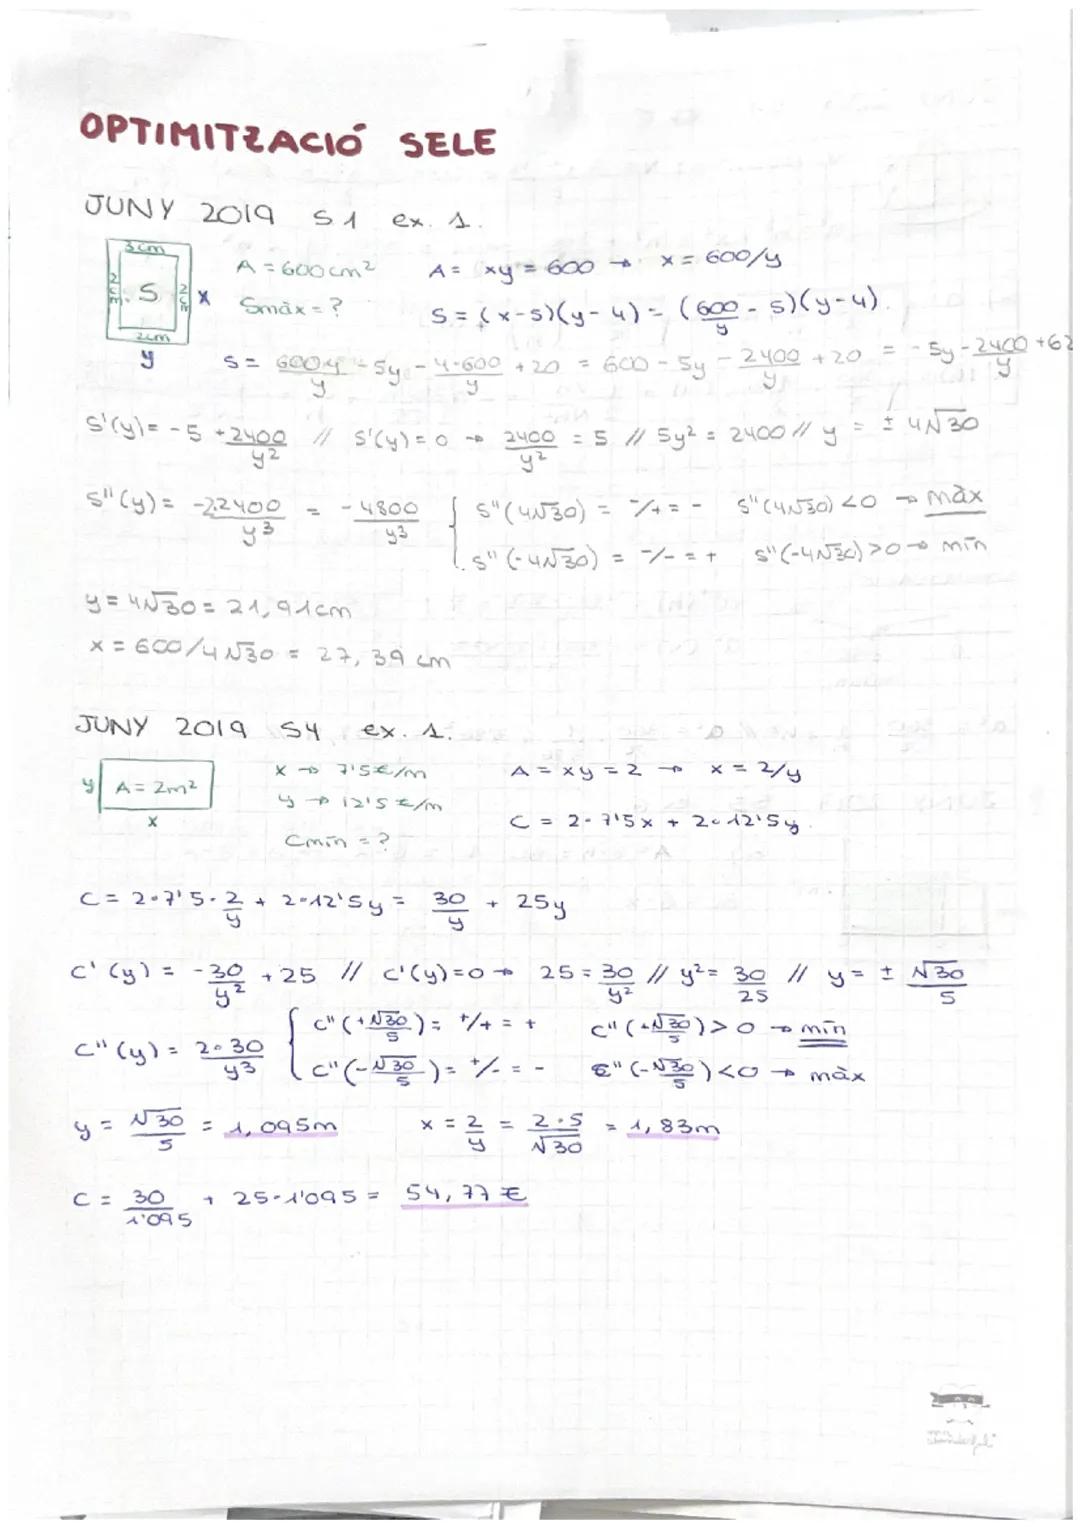 OPTIMITZACIÓ SELE
JUNY 2019 S1 ex. 1.
3cm
2cm. S 2cm x
2cm
y
A = 600 cm² A = xy = 600 → x = 600/y
Smàx = ? S = (x-5)(y-4) = (600/y - 5)(y-4).
S = 600y/y - 5y - 4·600/y + 20 = 600 - 5y - 2400/y + 20 = -5y - 2400/y + 62
S'(y) = -5 + 2400/y² // S'(y) = 0 → 2400/y² = 5 // 5y² = 2400 // y = ± 4√30
S''(y) = -2·2400/y³ = -4800/y³ { S''(4√30) = -/+ = - S''(4√30) < 0 → màx
S''(-4√30) = -/- = + S''(-4√30) > 0 → mín
y = 4√30 = 21,91cm
x = 600/4√30 = 27,39 cm
JUNY 2019 S4 ex. 1.
y A = 2m²
x
x → 7'5€/m A = xy = 2 → x = 2/y
y → 12'5€/m
C = 2·7'5x + 2·12'5y.
Cmín = ?
C = 2·7'5·2/y + 2·12'5y = 30/y + 25y
C'(y) = -30/y² + 25 // C'(y) = 0 → 25 = 30/y² // y² = 30/25 // y = ± √30/5
C''(y) = 2·30/y³ { C''(+√30/5) = +/+ = + C''(+√30/5) > 0 → mín
C''(-√30/5) = +/- = - C''(-√30/5) < 0 → màx
y = √30/5 = 1,095m x = 2/y = 2·5/√30 = 1,83m
C = 30/1'095 + 25·1'095 = 54,77 €